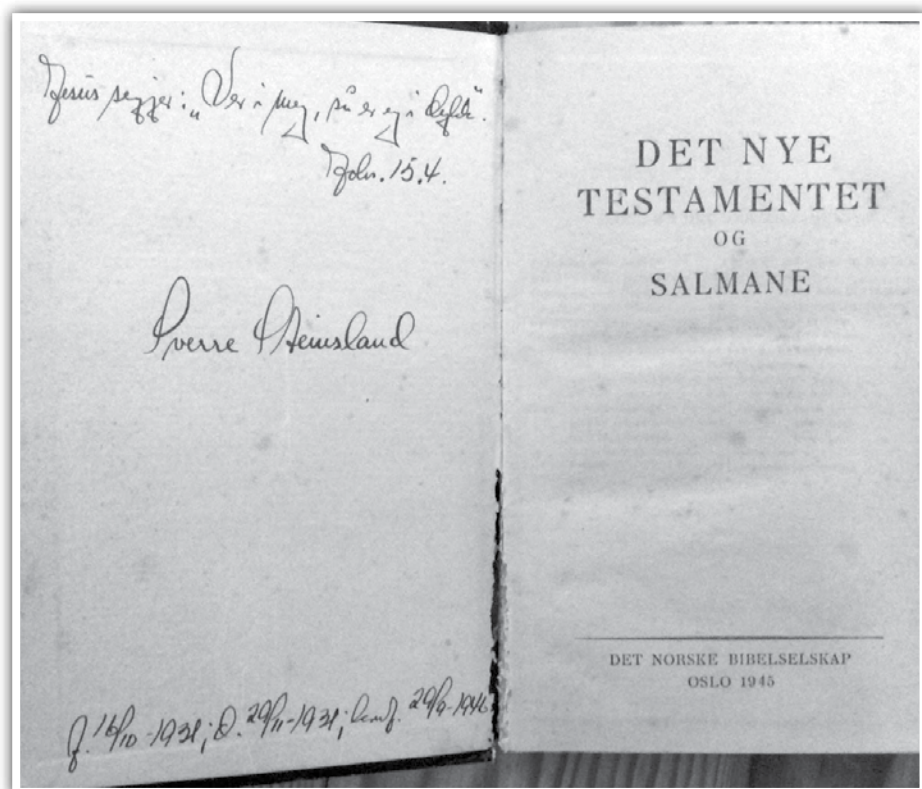 Jesus segjer: „Ver i meg, så er eg i dykk".
Joh. 15.4.
Sverre Steinsland
f. 16/10-1931; D. 29/11-1931; konf. 29/9-1946
DET NYE
TESTAMENTET
OG
SALMANE
DET NORSKE BIBELSELSKAP
OSLO 1945